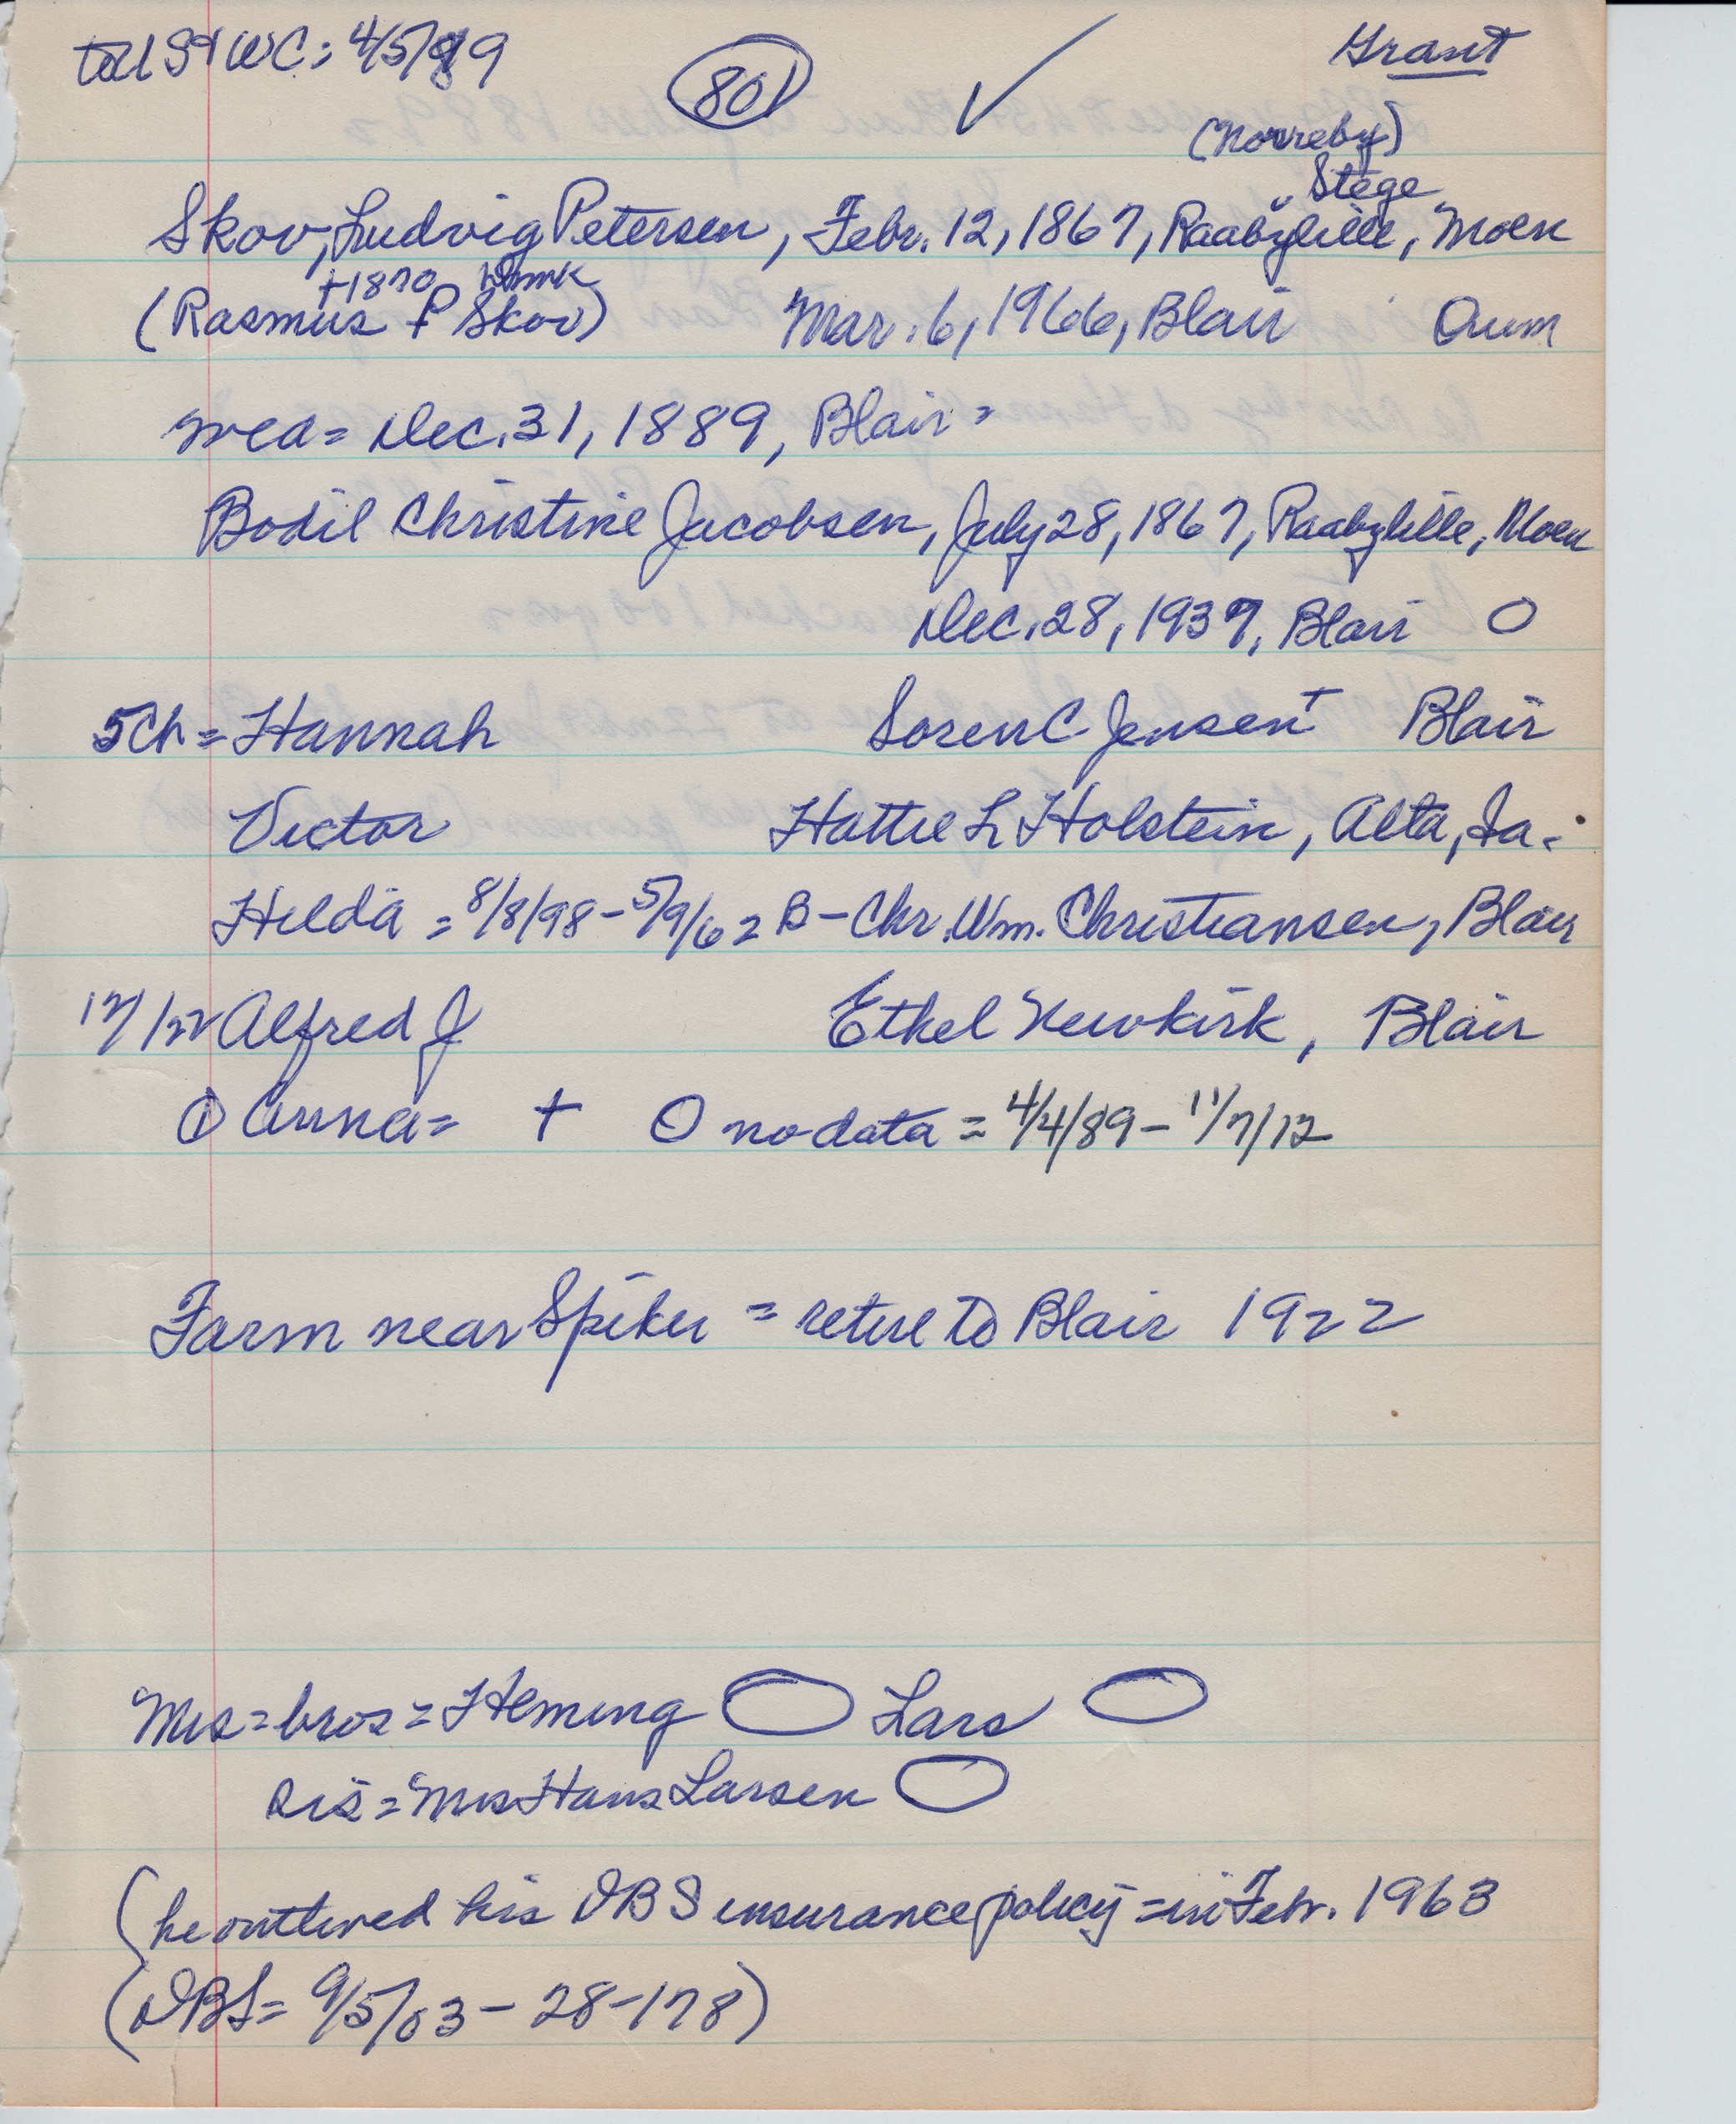 to US & WC: 4/5/89
801 ✓ Grant
(Norreby)
Stege
Skov, Ludvig Petersen, Febr. 12, 1867, Raabylille, Moen
+1870 Dmk
(Rasmus P Skov) Mar. 6, 1966, Blair Oum
med= Dec. 31, 1889, Blair=
Bodil Christine Jacobsen, July 28, 1867, Raabylille, Moen
Dec. 28, 1937, Blair O
5Ch = Hannah Soren C Jensen+ Blair
Victor Hattie L Holstein, Alta, Ia.
Hilda = 8/8/98 - 5/9/62 B - Chr. Wm. Christiansen, Blair
Alfred J Ethel Newkirk, Blair
Anna= + O no data = 4/4/89 - 11/7/12
Farm near Spiker = retire to Blair 1922
Mrs = bros = Heming Lars
sis = Mrs Hans Larsen
(he outlived his DBS insurance policy = in Febr. 1963
(DBS= 9/5/03 - 28-178)